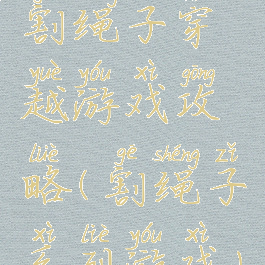 割绳子穿
yuè yóu xì gōng
越游戏攻
lüè gē shéng zǐ
略(割绳子
xì liè yóu xì
系列游戏)